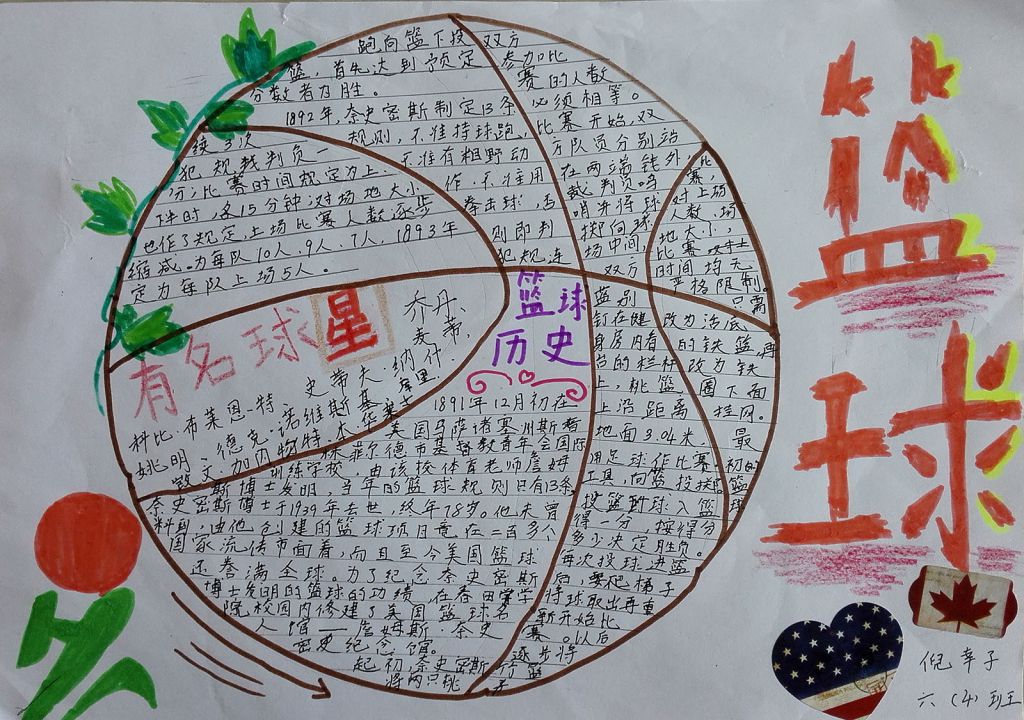 篮球
篮球
历史
1891年12月初在
美国马萨诸塞州斯普
林菲尔德市基督教青年会国际
训练学校,由该校体育老师詹姆
斯博士发明,当年的篮球规则只有13条
奈史密斯博士于1939年去世,终年78岁。他未曾
料到,由他创建的篮球项目竟在二百多个
国家流传
而且至今美国篮球
还卷满全球。为了纪念奈史密斯
博士发明的篮球的功绩,在春田
学
院校园内修建了美国篮球名
人馆——詹姆斯·奈史
密史纪念馆。
起初,奈史密斯
将两只桃
篮别
钉在健
身房内看
台的栏杆
上,桃篮
上沿距离
地面3.04米.
用足球作比赛
工具,向篮投掷。
投篮
球入篮
得一分,按得分
多少决定胜负。
每次投球进篮
后,要爬梯子
将球取出再重
新开始比
赛。以后
逐步将
竹篮
改为活底
的铁篮,再
改为铁
圈下面
挂网。
最
初的
篮
球
比
赛,
对上场
人数,场
地大小,
比赛
时间均无
严格限制。
只需
双方
参加比
赛的人数
必须相等。
比赛开始,双
方队员分别站
在两端线外,
裁判员鸣
哨并将球
掷向球
场中间,
双方
跑向篮下投
篮,首先达到预定
分数者为胜。
1892年,奈史密斯制定13条
规则,不准持球跑,
不准有粗野动
作,不准用
拳击球,否
则即判
犯规,连
续3次
犯规裁判负一
分;比赛时间规定为上.
下半时,各15分钟;对场地大小
也作了规定.上场比赛人数逐步
缩减.为每队10人、9人、7人,1893年
定为每队上场5人。
有名球星
乔丹、
麦蒂,
科比·布莱恩特、史蒂夫·纳什.
姚明、德克·诺维斯基、
凯文·加内特.
倪幸子
六(4)班